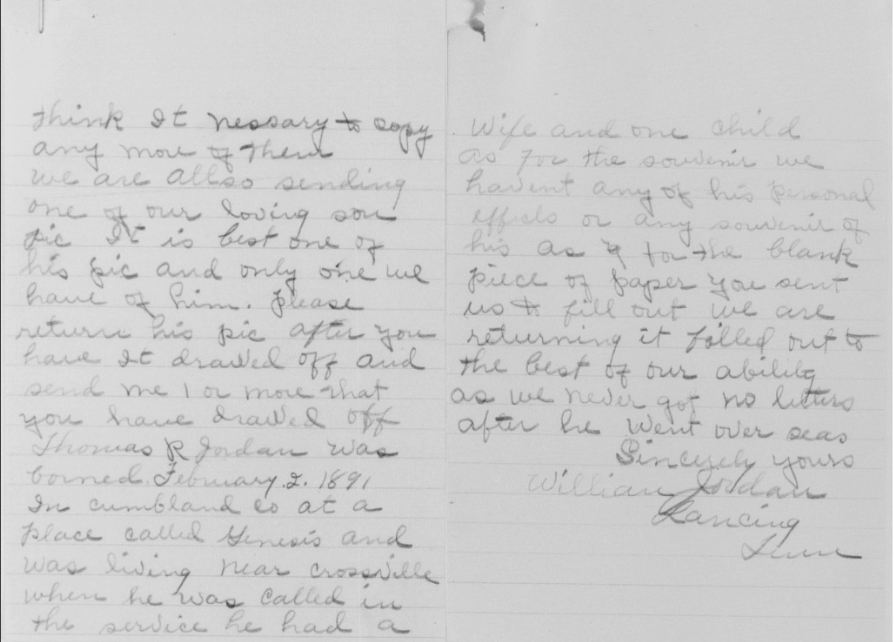 think It nessary to copy
any more of them
we are allso sending
one of our loving son
pic It is best one of
his pic and only one we
have of him. please
return his pic after you
have It drawed off and
send me 1 or more that
you have drawed off
Thomas R Jordan was
borned February 2. 1891
In cumbland co at a
place called Genesis and
was living near crossville
when he was called in
the service he had a
Wife and one child
as for the souvenir we
havent any of his personal
effects or any souvenir of
his as for the blank
piece of paper you sent
us to fill out we are
returning it filled out to
the best of our ability
as we never got no letters
after he went over seas
Sincerely yours
William Jordan
Lancing
Tenn